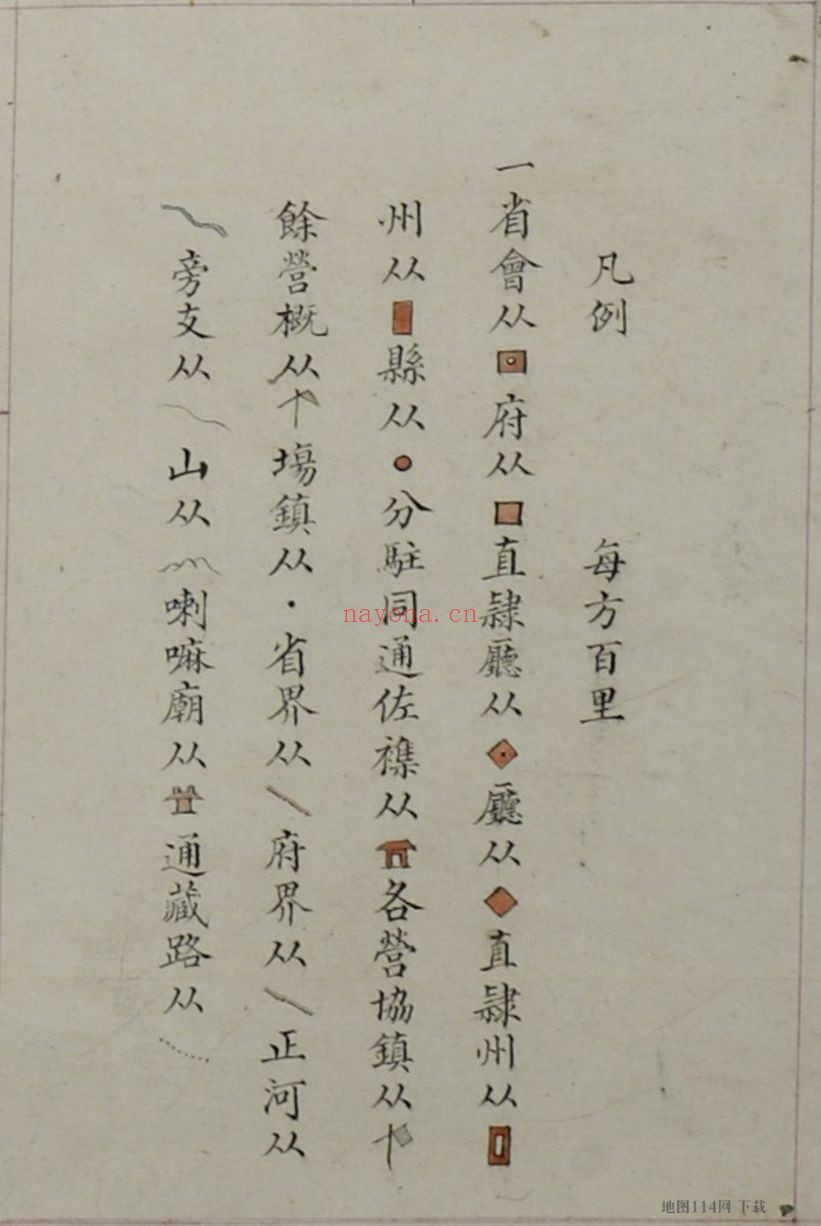 凡例 每方百里
一省會从 府从 直隸廳从 廳从 直隸州从
州从 縣从 分駐同通佐襍从 各營協鎮从
餘營概从 塲鎮从 省界从 府界从 正河从
旁支从 山从 喇嘛廟从 通藏路从
nayona.cn
地图114网 下载